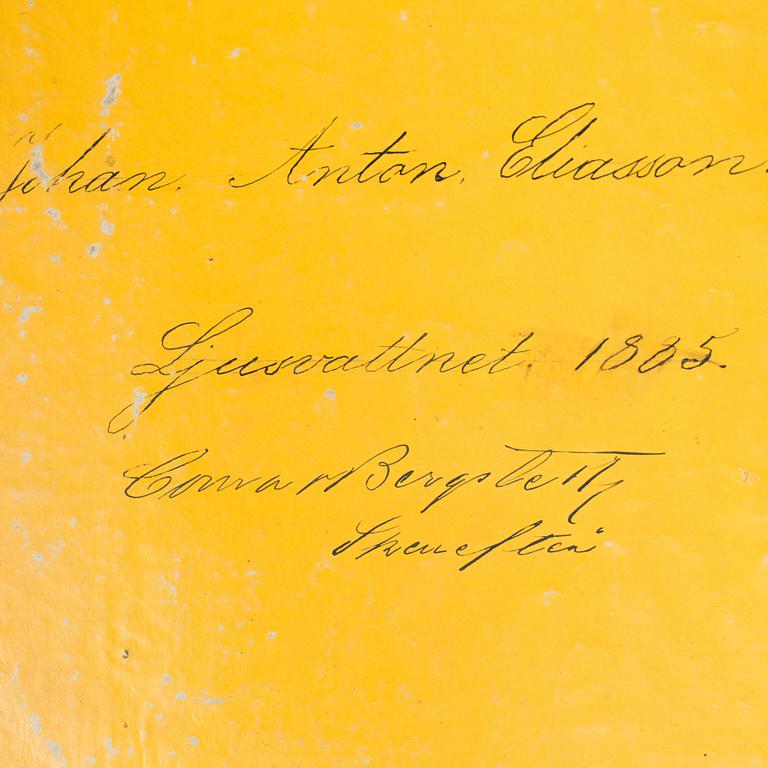 Johan. Anton. Eliasson.
Ljusvattnet. 1885.
Conrad Bergstett
Skellefteå